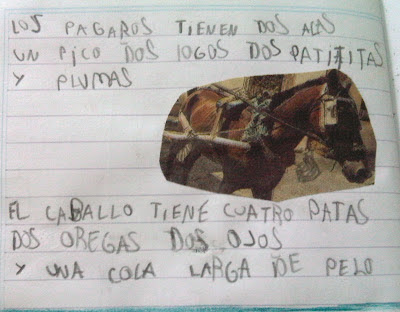 LOS PAGAROS TIENEN DOS ALAS
UN PICO DOS IOGOS DOS PATITITAS
Y PLUMAS
EL CABALLO TIENE CUATRO PATAS
DOS OREGAS DOS OJOS
Y UNA COLA LARGA DE PELO